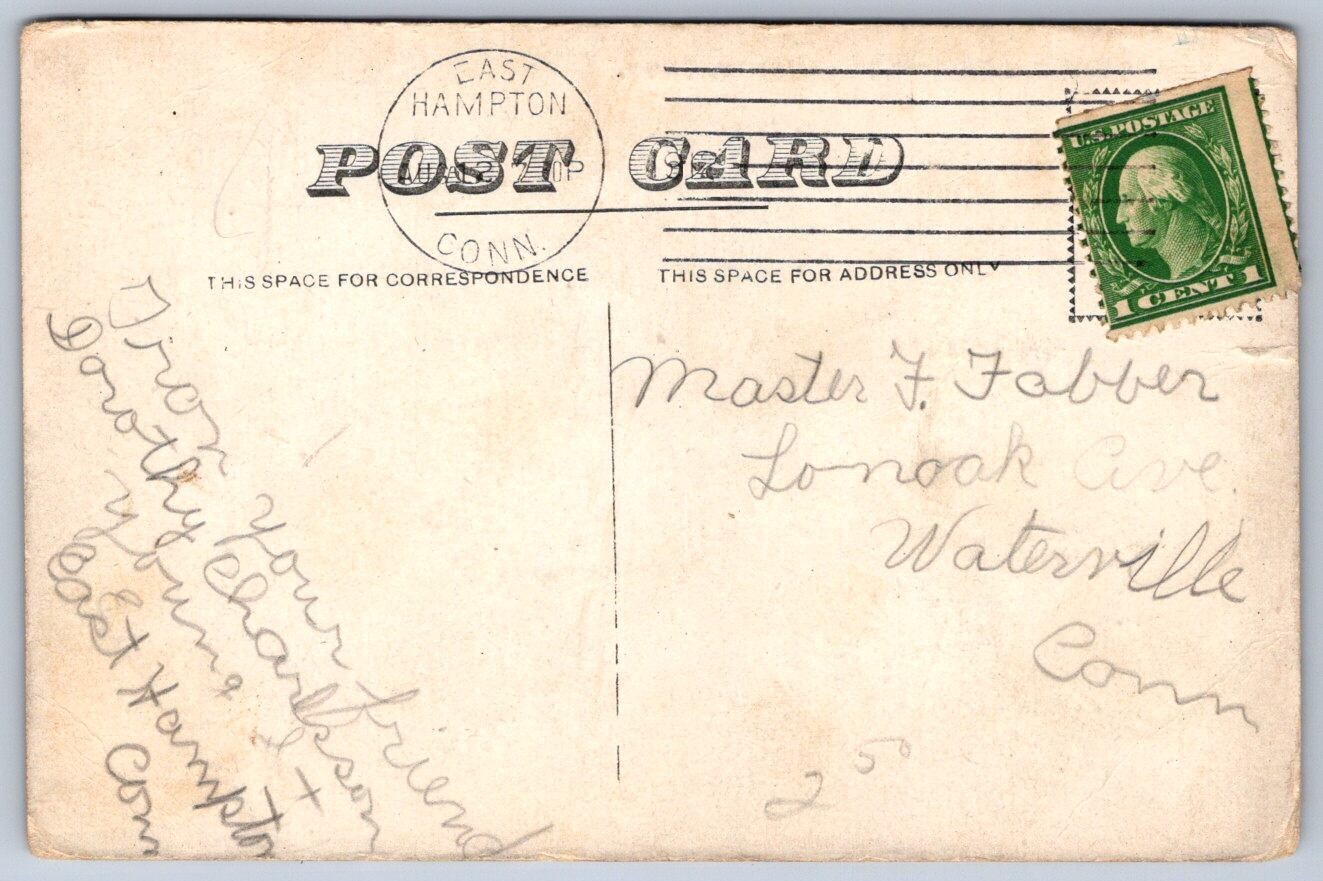 EAST
HAMPTON
CONN.
POST CARD
THIS SPACE FOR CORRESPONDENCE
THIS SPACE FOR ADDRESS ONLY
U.S. POSTAGE
1 CENT 1
From your friend
Dorothy Clarkson
young
East Hampton
Conn
Master F. Fabber
Lonoak Ave.
Waterville
Conn
25